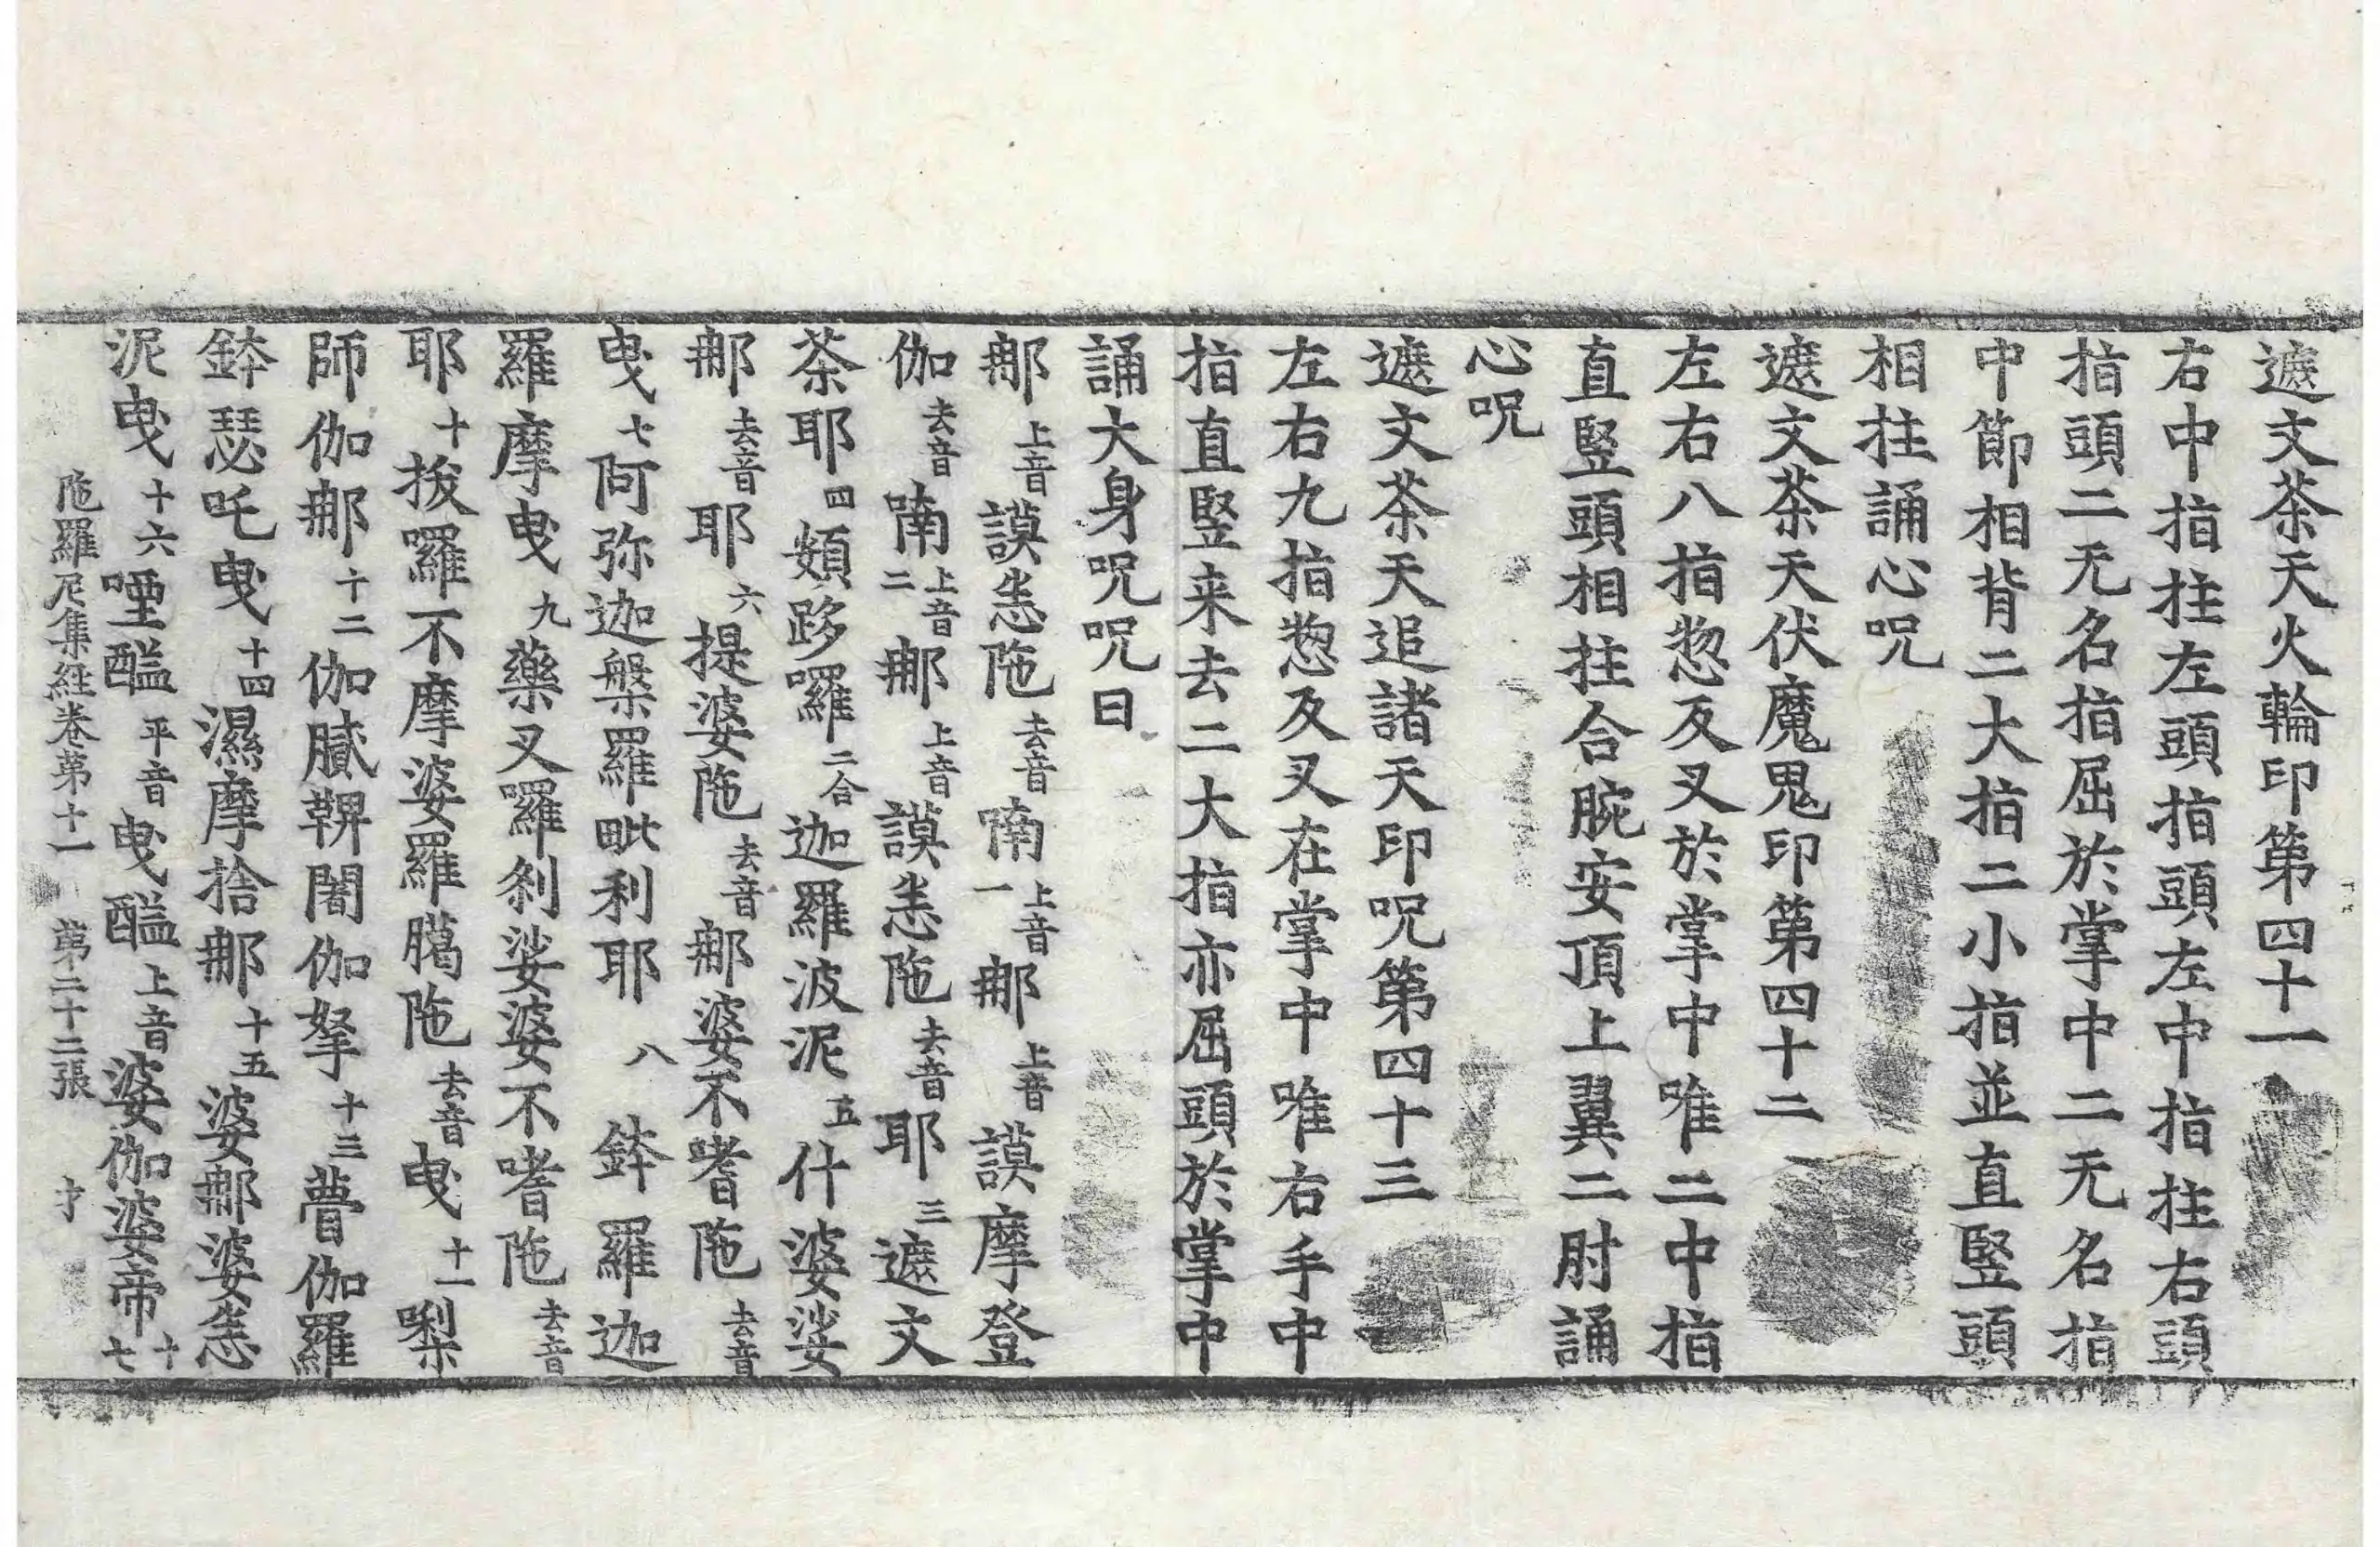 遮文茶天火輪印第四十一
右中指拄左頭指頭左中指拄右頭
指頭二无名指屈於掌中二无名指
中節相背二大指二小指並直竪頭
相拄誦心呪
遮文茶天伏魔鬼印第四十二
左右八指惣反叉於掌中唯二中指
直竪頭相拄合腕安頂上翼二肘誦
心呪
遮文茶天追諸天印呪第四十三
左右九指惣反叉在掌中唯右手中
指直竪来去二大指亦屈頭於掌中
誦大身呪呪曰
那上音謨恙陁去音喃上音一那上音謨摩登
伽去音喃上音二那上音謨恙陁去音耶三遮文
茶耶四頞跢囉二合迦羅波泥五什婆娑
那去音耶六提婆陁去音那婆不嗜陁去音
曳七阿弥迦槃羅毗利耶八鉢羅迦
羅摩曳九藥叉羅刹娑婆不嗜陁去音
耶十拔囉不摩婆羅臈陁去音曳十一㘑
師伽那十二伽膩鞞闍伽拏十三瞢伽羅
鉢瑟吒曳十四濕摩捨那十五婆那婆恙
泥曳十六堙醯平音曳醯上音婆伽婆帝十七
陁羅尼集経卷第十一 第二十二張 才